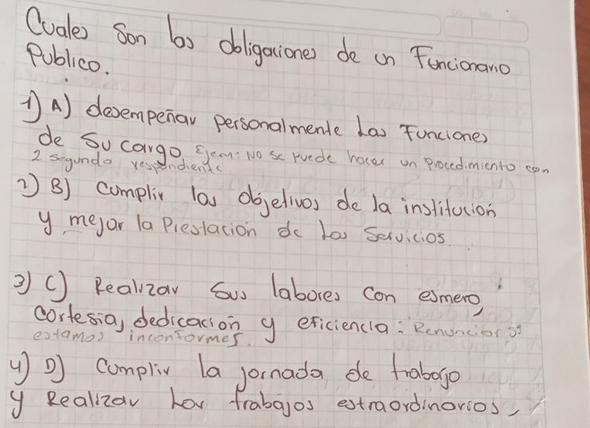 Cuales Son las obligaciones de un Funcionario
Publico.
1) A) desempeñar personalmente las Funciones
de Su cargo Ejem: No se puede hacer un Procedimiento con
2 segundo respondiente
2) B) cumplir las objetivos de la institucion
y mejar la Prestacion de los Servicios.
3) C) Realizar Sus labores con esmero,
cortesia, dedicacion y eficiencia: Renunciar si
estamos inconformes.
4) D) Cumplir la jornada de trabajo
y Realizar los trabajos estraordinarios,